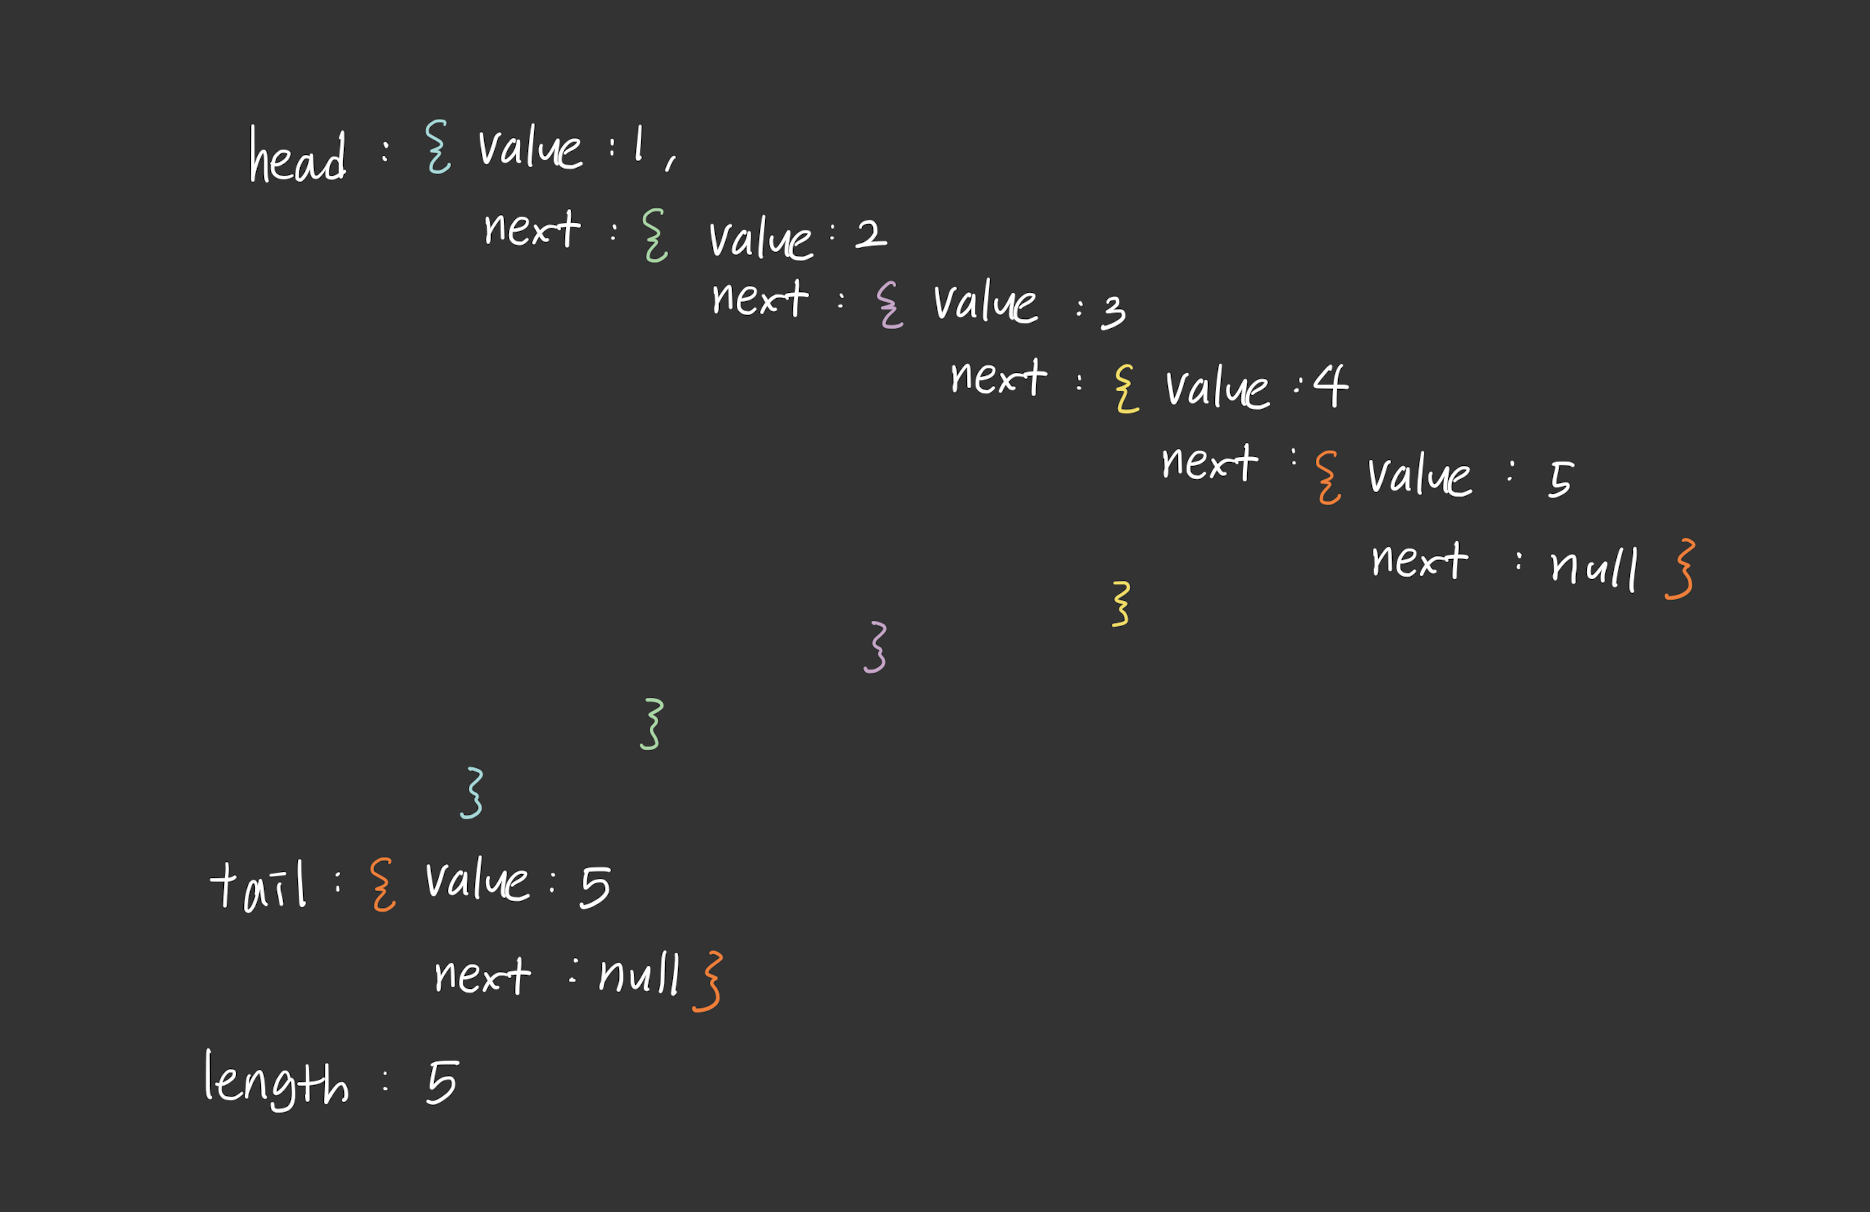 head : { value : 1,
next : { value : 2
next : { value : 3
next : { value : 4
next : { value : 5
next : null }
}
}
}
}
tail : { value : 5
next : null }
length : 5